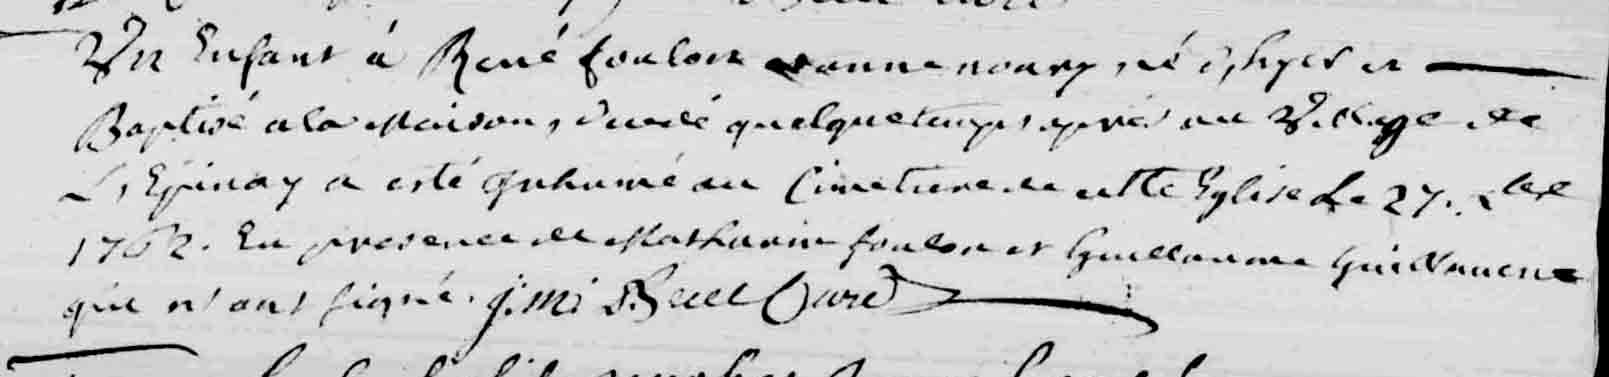 Un Enfant à René foulon et anne noury, né d'hyer et
Baptisé a la Maison, décédé quelque temps après au Village de
L'Epinay a esté Inhumé au Cimetiere de cette Eglise Le 27. xbre
1762. En presence de Mathurin foulon et Guillaume Guillaume
qui n'ont signé. j: m:  Curé